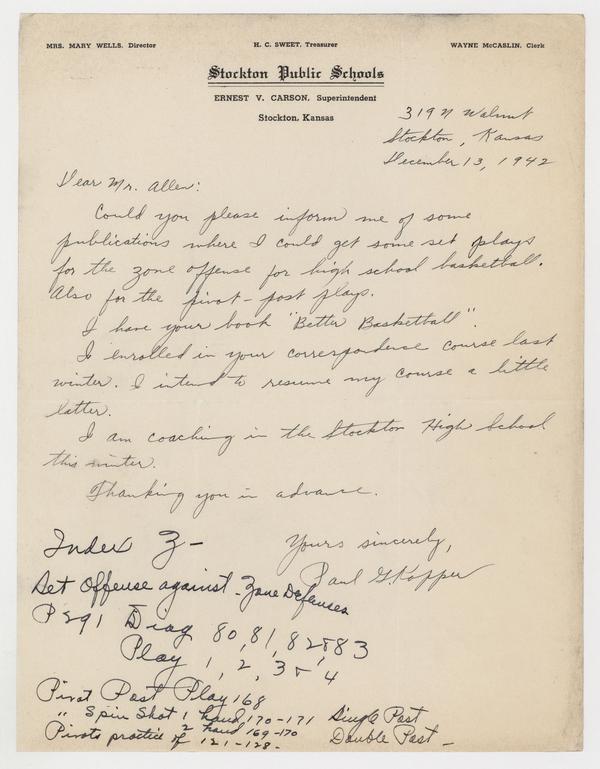 MRS. MARY WELLS, Director H. C. SWEET, Treasurer WAYNE McCASLIN, Clerk
Stockton Public Schools
ERNEST V. CARSON, Superintendent
Stockton, Kansas
319 N Walnut
Stockton, Kansas
December 13, 1942
Dear Mr. Allen:
Could you please inform me of some
publications where I could get some set plays
for the zone offense for high school basketball.
Also for the pivot-post plays.
I have your book "Better Basketball".
I enrolled in your correspondence course last
winter. I intend to resume my course a little
latter.
I am coaching in the Stockton High School
this winter.
Thanking you in advance.
Yours sincerely,
Paul G. Kopper
Index Z-
Set Offense against - Zone Defenses
P 291 Diag 80, 81, 82 & 83
Play 1, 2, 3 & 4
Pivot Post Play 168
" Spin Shot 1 hand 170-171 Single Post
2 hand 169-170
Pivots practice of 121-128- Double Post -